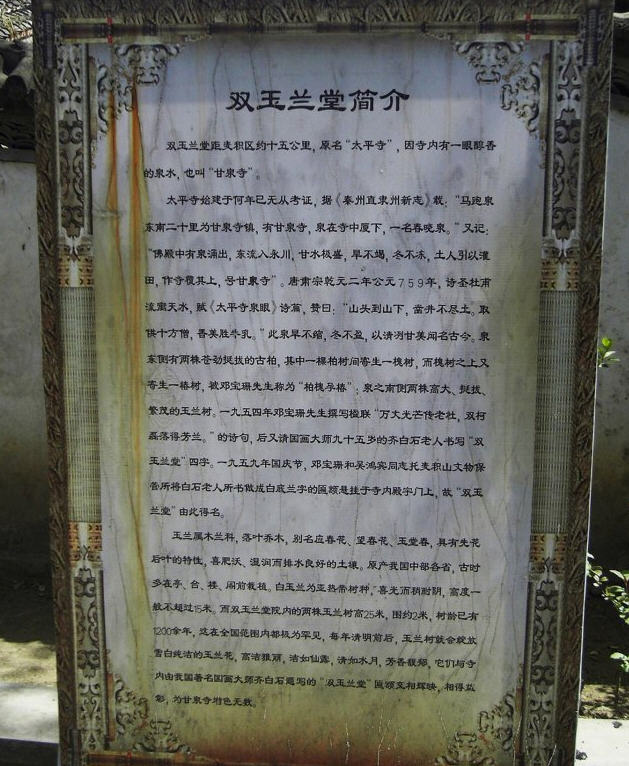 双玉兰堂简介
双玉兰堂距麦积区约十五公里，原名“太平寺”，因寺内有一眼醇香
的泉水，也叫“甘泉寺”。
太平寺始建于何年已无从考证，据《秦州直隶州新志》载：“马跑泉
东南二十里为甘泉寺镇，有甘泉寺，泉在寺中厦下，一名春晓泉。”又记：
“佛殿中有泉涌出，东流入永川，甘水极盛，旱不竭，冬不冻，土人引以灌
田，作寺覆其上，号甘泉寺”。唐肃宗乾元二年公元759年，诗圣杜甫
流寓天水，赋《太平寺泉眼》诗篇，赞曰：“山头到山下，凿井不尽土。取
供十方僧，香美胜牛乳。”此泉旱不缩，冬不盈，以清冽甘美闻名古今。泉
东侧有两株苍劲挺拔的古柏，其中一棵柏树间寄生一槐树，而槐树之上又
寄生一椿树，被邓宝珊先生称为“柏槐孕椿”；泉之南侧两株高大、挺拔、
繁茂的玉兰树。一九五四年邓宝珊先生撰写楹联“万丈光芒传老杜，双柯
磊落得芳兰。”的诗句，后又请国画大师九十五岁的齐白石老人书写“双
玉兰堂”四字。一九五九年国庆节，邓宝珊和吴鸿宾同志托麦积山文物保
管所将白石老人所书做成白底兰字的匾额悬挂于寺内殿宇门上，故“双玉
兰堂”由此得名。
玉兰属木兰科，落叶乔木，别名应春花、望春花、玉堂春，具有先花
后叶的特性，喜肥沃、湿润而排水良好的土壤。原产我国中部各省，古时
多在亭、台、楼、阁前栽植。白玉兰为亚热带树种，喜光而稍耐阴，高度一
般不超过15米，而双玉兰堂院内的两株玉兰树高25米，围约2米，树龄已有
1200余年，这在全国范围内都极为罕见，每年清明前后，玉兰树就会绽放
雪白纯洁的玉兰花，高洁雅丽，洁如仙露，清如水月，芳香馥郁，它们与寺
内由我国著名国画大师齐白石题写的“双玉兰堂”匾额交相辉映，相得益
彰，为甘泉寺增色无数。